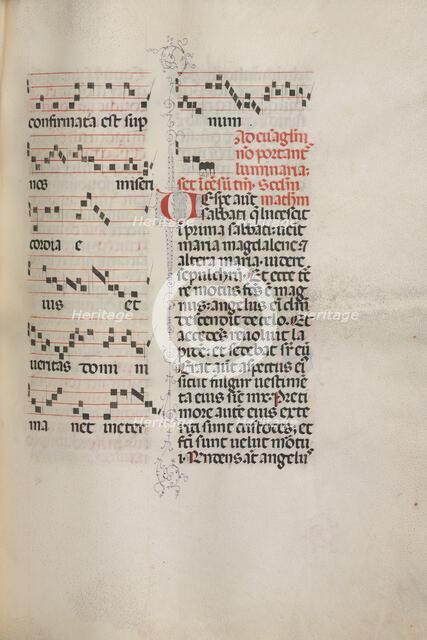 confirmata est sup
nos miseri
cordia e
ius et
ueritas domi ni
ma net ineter
num.
Ad euãgliu
nõ portant
luminaria:
set icẽsũ tm̃. Scdm
matheũ
Vespe aut̃
sabbati q̃ lucescit
i prima sabbati: uenit
maria magdalene: 7
altera maria. uidere
sepulchrũ. Et ecce te
re motus fcũs ẽ mag
nus: angelus ei dñi
descendit de celo. Et
accedẽs reuoluit la
pidẽ: et sedebat sr eũ
Erat aut̃ aspectus ei
sicut fulgur: uestimẽ
ta eius sic̃ nix. Preti
more autẽ eius exte
riti sunt custodes: et
fcĩ sunt uelut mortu
i. Rñdens aũt angelu